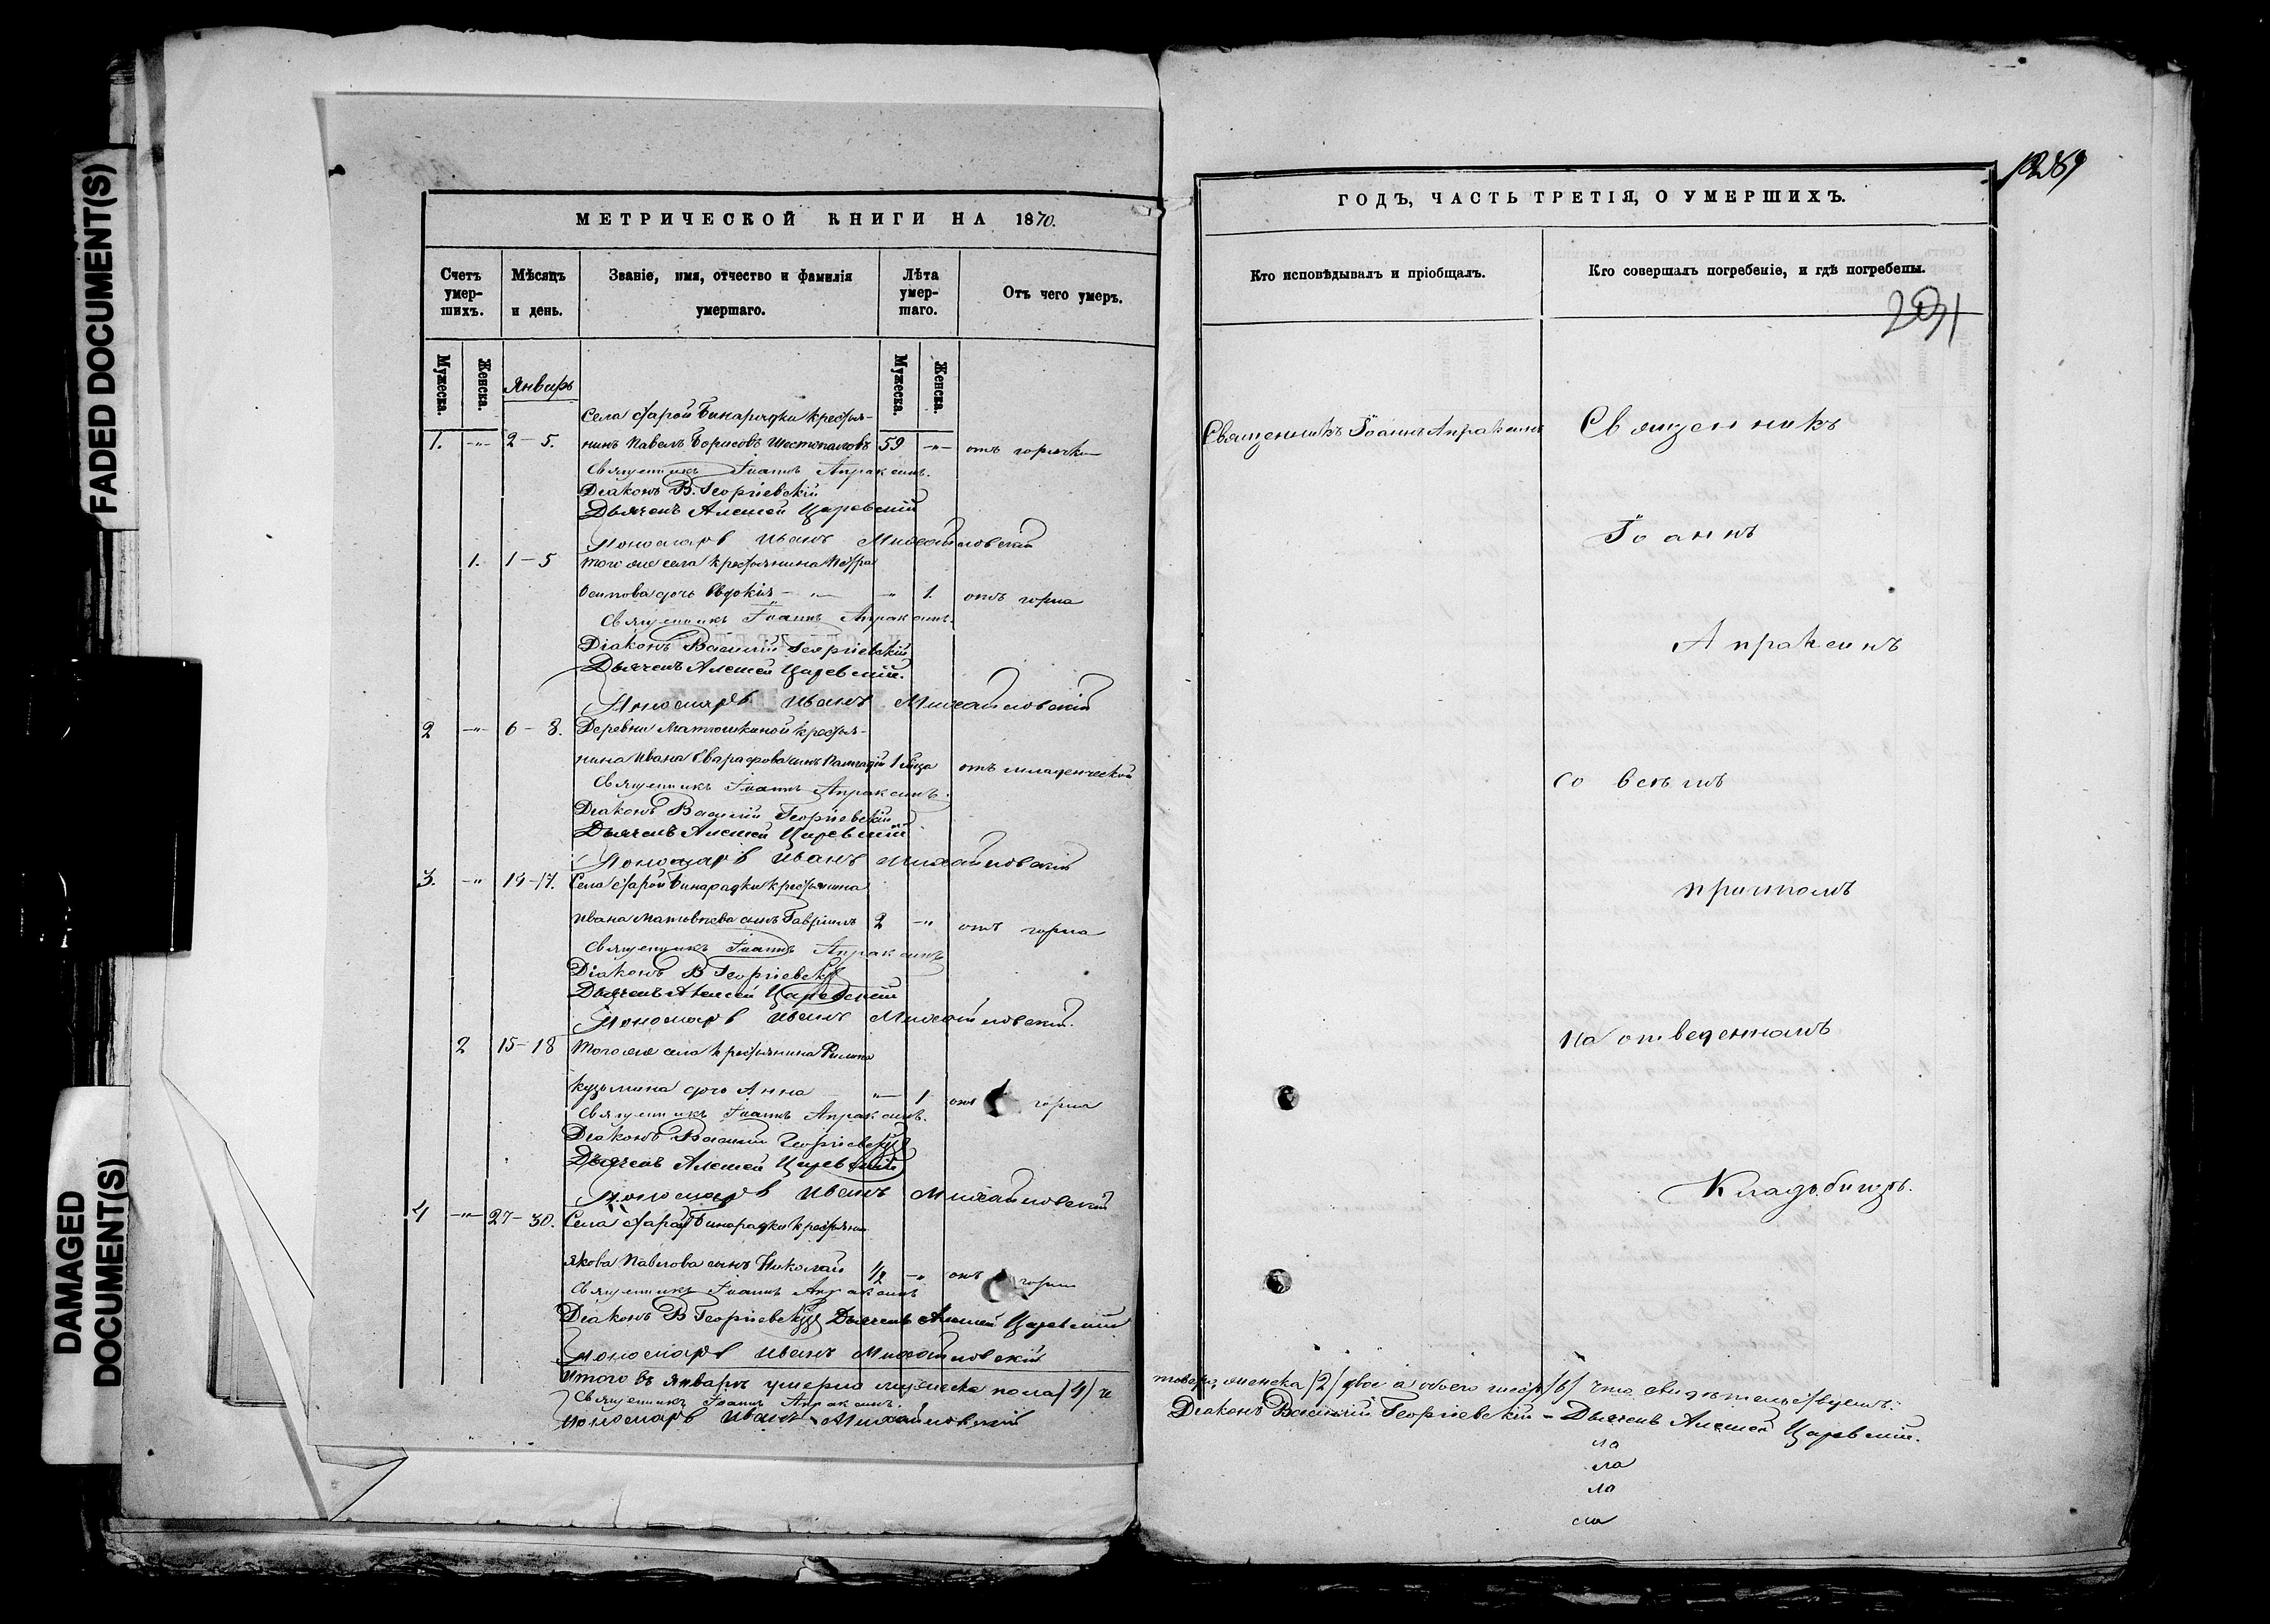 FADED DOCUMENT(S)
DAMAGED
DOCUMENT(S)
МЕТРИЧЕСКОЙ КНИГИ НА 1870.
Счетъ умер-шихъ.
Мѣсяцъ и день.
Званіе, имя, отчество и фамилія умершаго.
Лѣта умер-шаго.
Отъ чего умеръ.
Мужеска.
Женска.
Январь
Мужеска.
Женска.
Села старой Бинарадки крестья-
1. -"- 2-5. нинъ Павелъ Борисовъ Шестопаловъ 59 -"- отъ горячки
Священникъ Іоаннъ Апраксинъ.
Діаконъ В. Георгіевскій
Дьячекъ Алексей Царевскій
Пономарь Иванъ Михайловскій
1. 1-5 того же села крестьянина Петра
Осипова дочь Евдокія -"- 1. отъ горла
Священникъ Іоаннъ Апраксинъ.
Діаконъ Василій Георгіевскій
Дьячекъ Алексей Царевскій.
Пономарь Иванъ Михайловскій
2 -"- 6-8. Деревни Матюшкиной крестья-
нина Ивана сынъ 1 мѣся отъ младенческой
Священникъ Іоаннъ Апраксинъ.
Діаконъ Василій Георгіевскій
Дьячекъ Алексей Царевскій
Пономарь Иванъ Михайловскій
3. -"- 14-17. Села старой Бинарадки крестьянина
Ивана Матвѣева сынъ Гавріилъ 2 -"- отъ горла
Священникъ Іоаннъ Апраксинъ
Діаконъ В Георгіевскій
Дьячекъ Алексей Царевскій
Пономарь Иванъ Михайловскій.
2 15-18 Того же села крестьянина Филипа
Кузьмина дочь Анна -"- 1 отъ горла
Священникъ Іоаннъ Апраксинъ.
Діаконъ Василій Георгіевскій
Дьячекъ Алексей Царевскій
Пономарь Иванъ Михайловскій
4 -"- 27-30. Села старой Бинарадки крестьянина
Якова Павлова сынъ Николай 1/2 -"- отъ горла
Священникъ Іоаннъ Апраксинъ
Діаконъ В Георгіевскій Дьячекъ Алексей Царевскій
Пономарь Иванъ Михайловскій
Итого въ Январѣ умерло мужеска пола /4/ че
Священникъ Іоаннъ Апраксинъ.
Пономарь Иванъ Михайловскій
ГОДЪ, ЧАСТЬ ТРЕТІЯ, О УМЕРШИХЪ.
Кто исповѣдывалъ и пріобщалъ.
Кто совершалъ погребеніе, и гдѣ погребены.
Священникъ Іоаннъ Апраксинъ
Священникъ
Іоаннъ
Апраксинъ
со всѣмъ
притомъ
на отведенномъ
Кладбищѣ.
женска /2/ двѣ а обоего /6/ что свидѣтельствуемъ:
Діаконъ Василій Георгіевскій - Дьячекъ Алексей Царевскій.